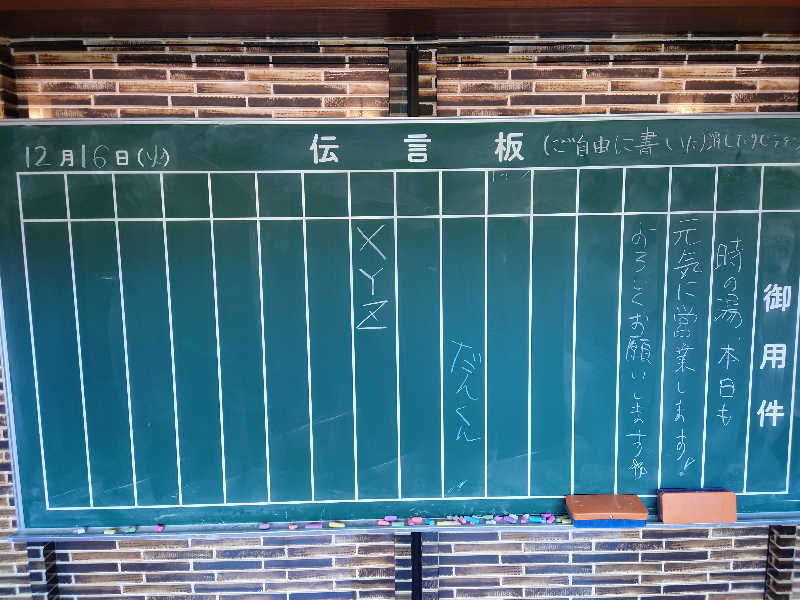 12月16日(火)
伝言板
(ご自由に書いたり消したりして
御用件
時の湯 本日も
元気に営業します!
よろしくお願いします
だんくん
XYZ